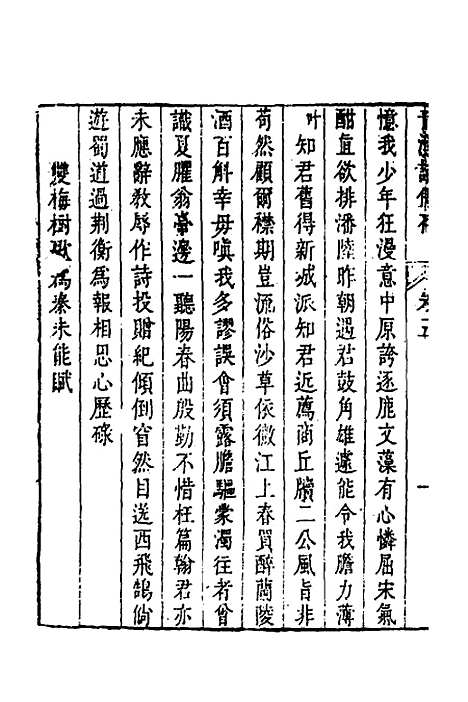 卷五
憶我少年狂漫意中原誇逐鹿文藻有心憐屈宋氣
酣直欲排潘陸昨朝遇君鼓角雄遽能令我膽力薄
叶知君舊得新城派知君近薦商丘牘二公風旨非
苟然顧爾襟期豈流俗沙草依微江上春買醉蘭陵
酒百斛幸毋嗔我多謬誤會須露膽驅蒙濁往者曾
識夏臞翁臺邊一聽陽春曲殷勤不惜枉篇翰君亦
未應辭教辱作詩投贈紀傾倒窅然目送西飛鵠倘
遊蜀道過荆衡為報相思心歷碌
雙梅樹歌為秦未能賦